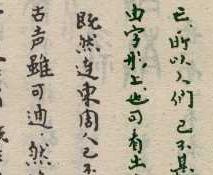 已．所以人們已不甚
由字形上也可看出
既然連東周人已不
古声雖可通，然